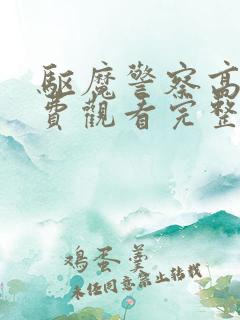 驅魔警察高
費觀看完整
鸡蛋羹
未经同意禁止转载